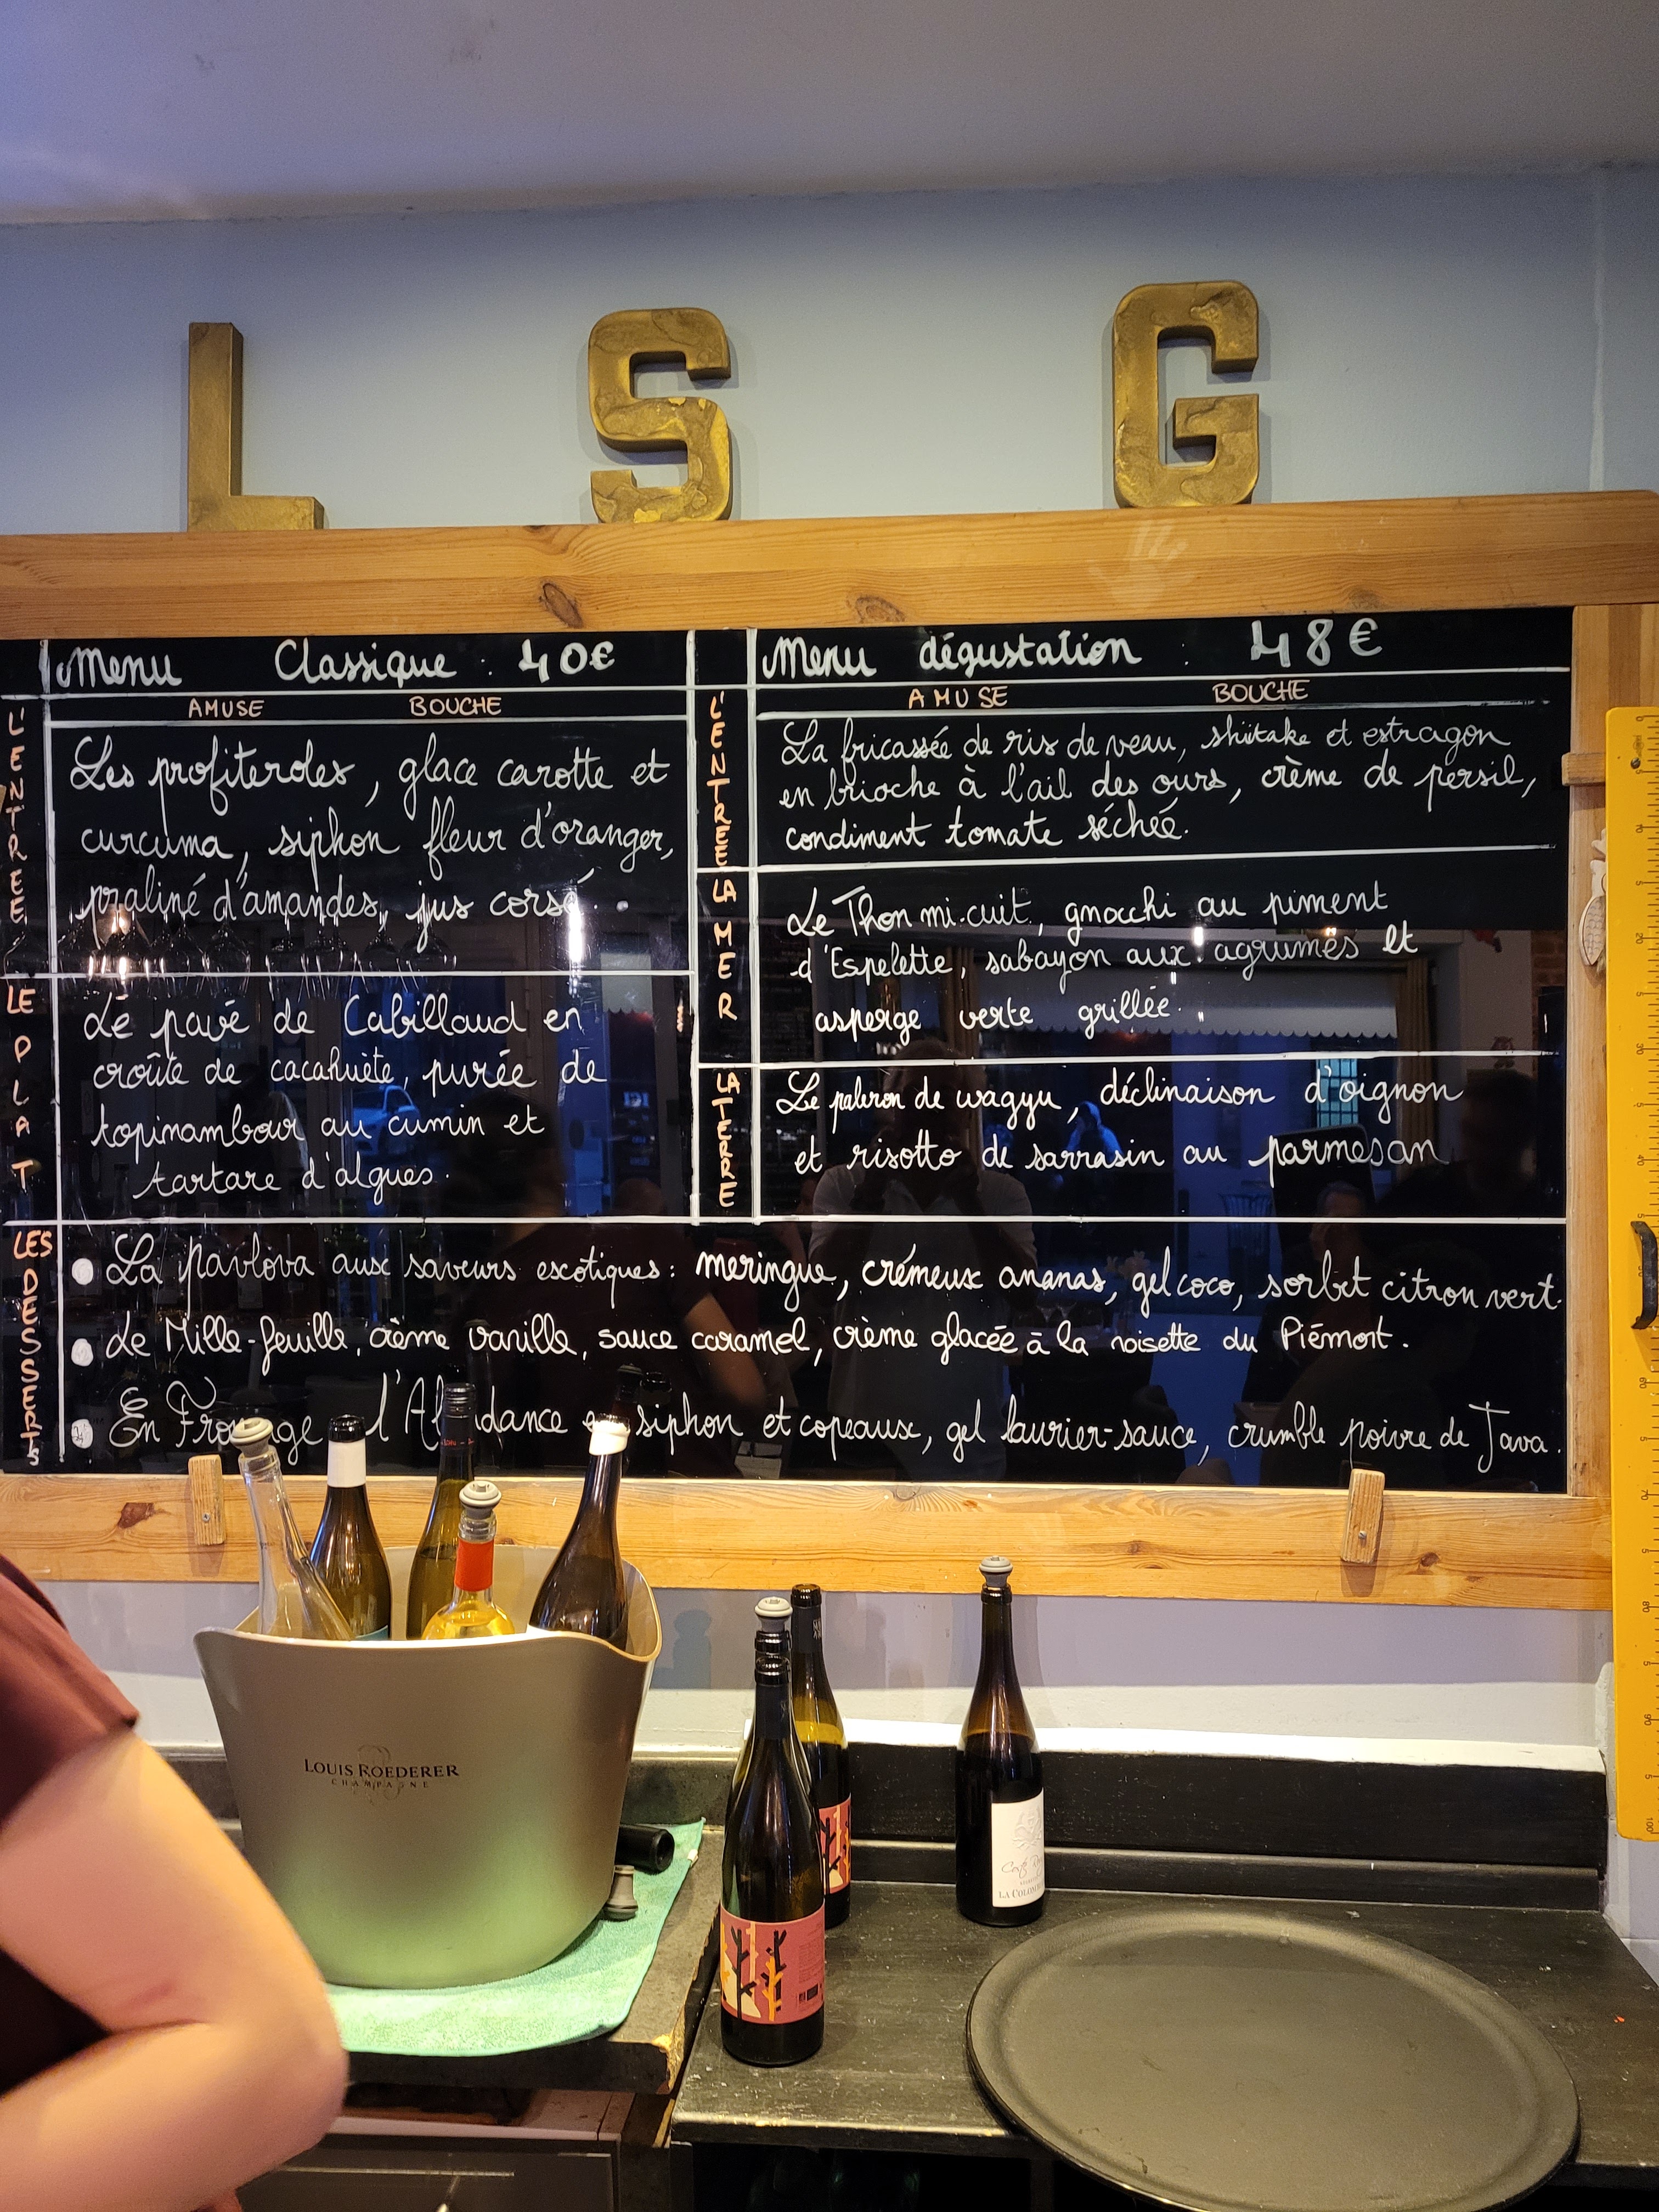 L S G
Menu Classique : 40€
AMUSE BOUCHE
L'ENTRÉE
Les profiteroles, glace carotte et
curcuma, siphon fleur d'oranger,
praliné d'amandes, jus corsé.
LE PLAT
Le pavé de Cabillaud en
croûte de cacahuète, purée de
topinambour au cumin et
tartare d'algues.
Menu dégustation : 48€
AMUSE BOUCHE
L'ENTREE
La fricassée de ris de veau, shiitake et estragon
en brioche à l'ail des ours, crème de persil,
condiment tomate séchée.
LA MER
Le Thon mi-cuit, gnocchi au piment
d'Espelette, sabayon aux agrumes et
asperge verte grillée.
LA TERRE
Le paleron de wagyu, déclinaison d'oignon
et risotto de sarrasin au parmesan
LES DESSERTS
La Pavlova aux saveurs exotiques : meringue, crémeux ananas, gel coco, sorbet citron vert.
Le Mille-feuille, crème vanille, sauce caramel, crème glacée à la noisette du Piémont.
En l'Ab ndance siphon et copeaux, gel laurier-sauce, crumble poivre de Java.
LOUIS ROEDERER
CHAMPAGNE